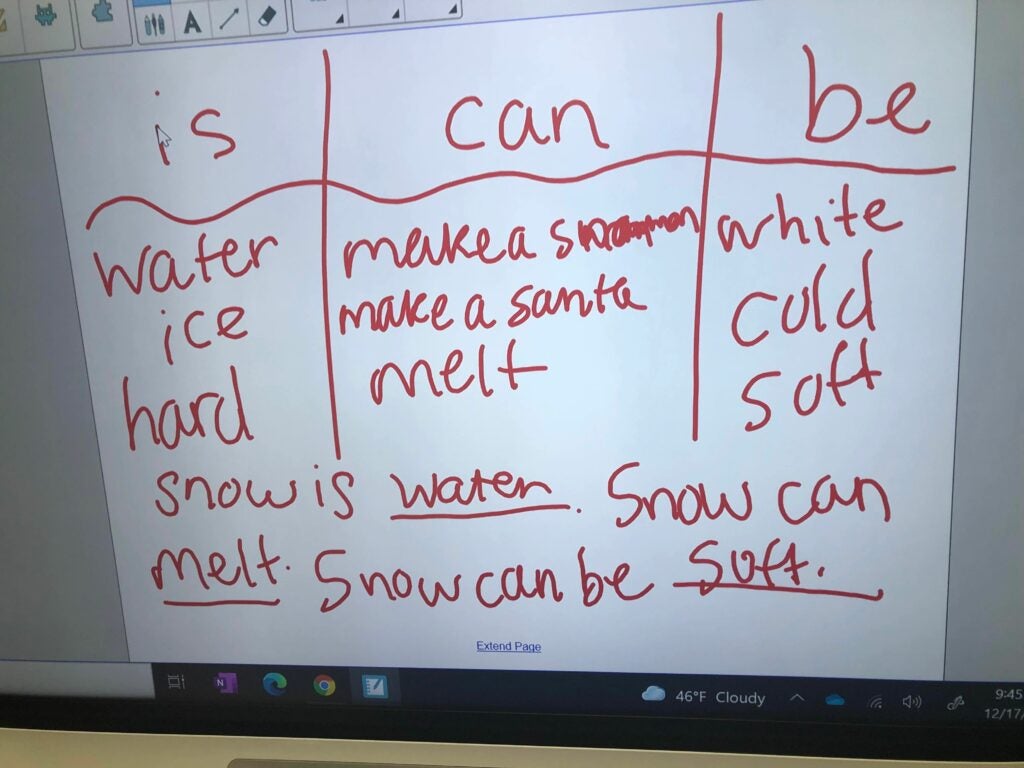 A
is can be
water make a snowman white
ice make a santa cold
hard melt soft
snow is water. Snow can
melt. Snow can be soft.
Extend Page
N 46°F Cloudy 9:45
12/17/